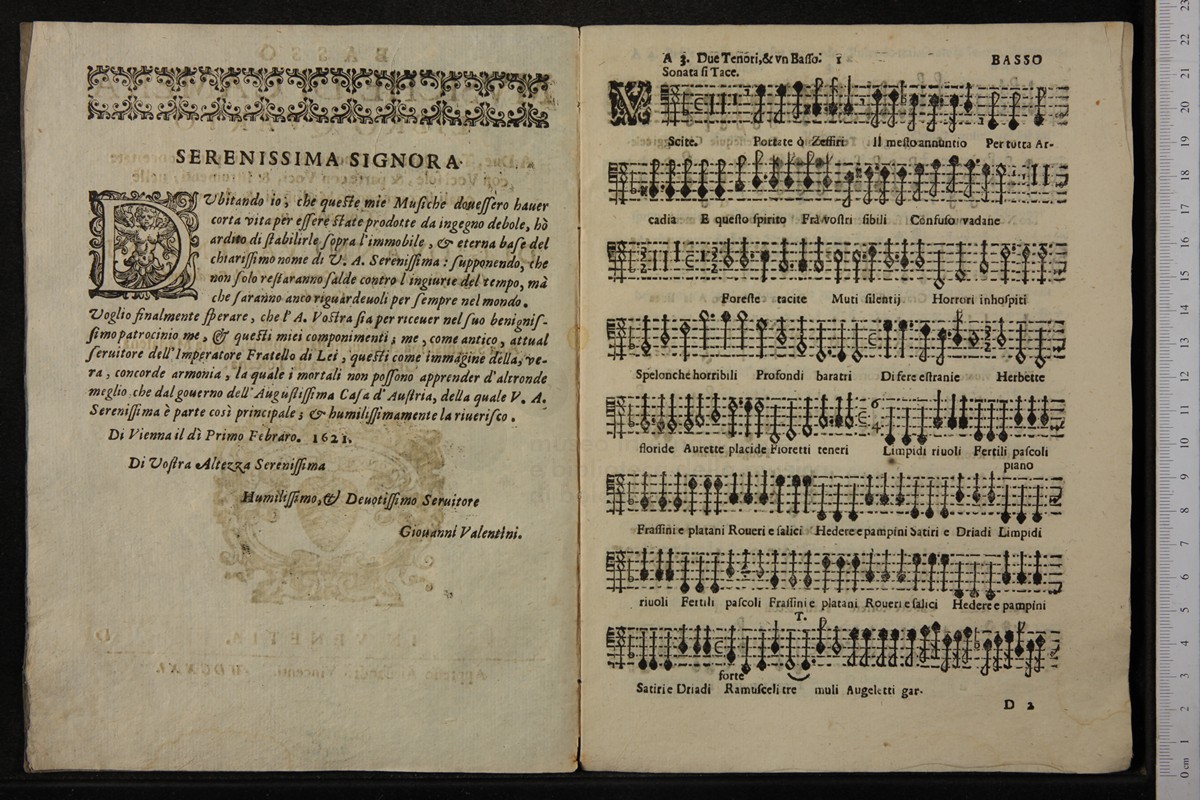 SERENISSIMA SIGNORA.
DVbitando io, che queſte mie Muſiche doueſſero hauer
corta vita per eſſere ſtate prodotte da ingegno debole, hò
ardito di ſtabilirle ſopra l'immobile, & eterna baſe del
chiariſſimo nome di V. A. Sereniſſima: ſupponendo, che
non ſolo reſtaranno ſalde contro l'ingiurie del tempo, mà
che ſaranno anco riguardeuoli per ſempre nel mondo.
Voglio finalmente ſperare, che l'A. Voſtra ſia per riceuer nel ſuo benigniſ-
ſimo patrocinio me, & queſti miei componimenti; me, come antico, attual
ſeruitore dell'Imperatore Fratello di Lei, queſti come immagine della, ve-
ra, concorde armonia, la quale i mortali non poſſono apprender d'altronde
meglio che dal gouerno dell'Auguſtiſſima Caſa d'Auſtria, della quale V. A.
Sereniſſima è parte così principale; & humiliſſimamente la riueriſco.
Di Vienna il dì Primo Febraro. 1621.
Di Voſtra Altezza Sereniſſima
Humiliſſimo, & Deuotiſſimo Seruitore
Giouanni Valentini.
A 3. Due Tenori, & vn Baſſo. 1 BASSO
Sonata ſi Tace.
VScite. Portate ò Zeffiri Il meſto annuntio Per tutta Ar-
cadia E queſto ſpirito Frà voſtri ſibili Confuſo vadane
Foreſte tacite Muti ſilentij Horrori inhoſpiti
Spelonche horribili Profondi baratri Di fere eſtranie Herbette
floride Aurette placide Fioretti teneri Limpidi riuoli Fertili paſcoli
piano
Fraſſini e platani Roueri e ſalici Hedere e pampini Satiri e Driadi Limpidi
riuoli Fertili paſcoli Fraſſini e platani Roueri e ſalici Hedere e pampini
T.
forte
Satiri e Driadi Ramuſceli tre muli Augeletti gar-
D 2